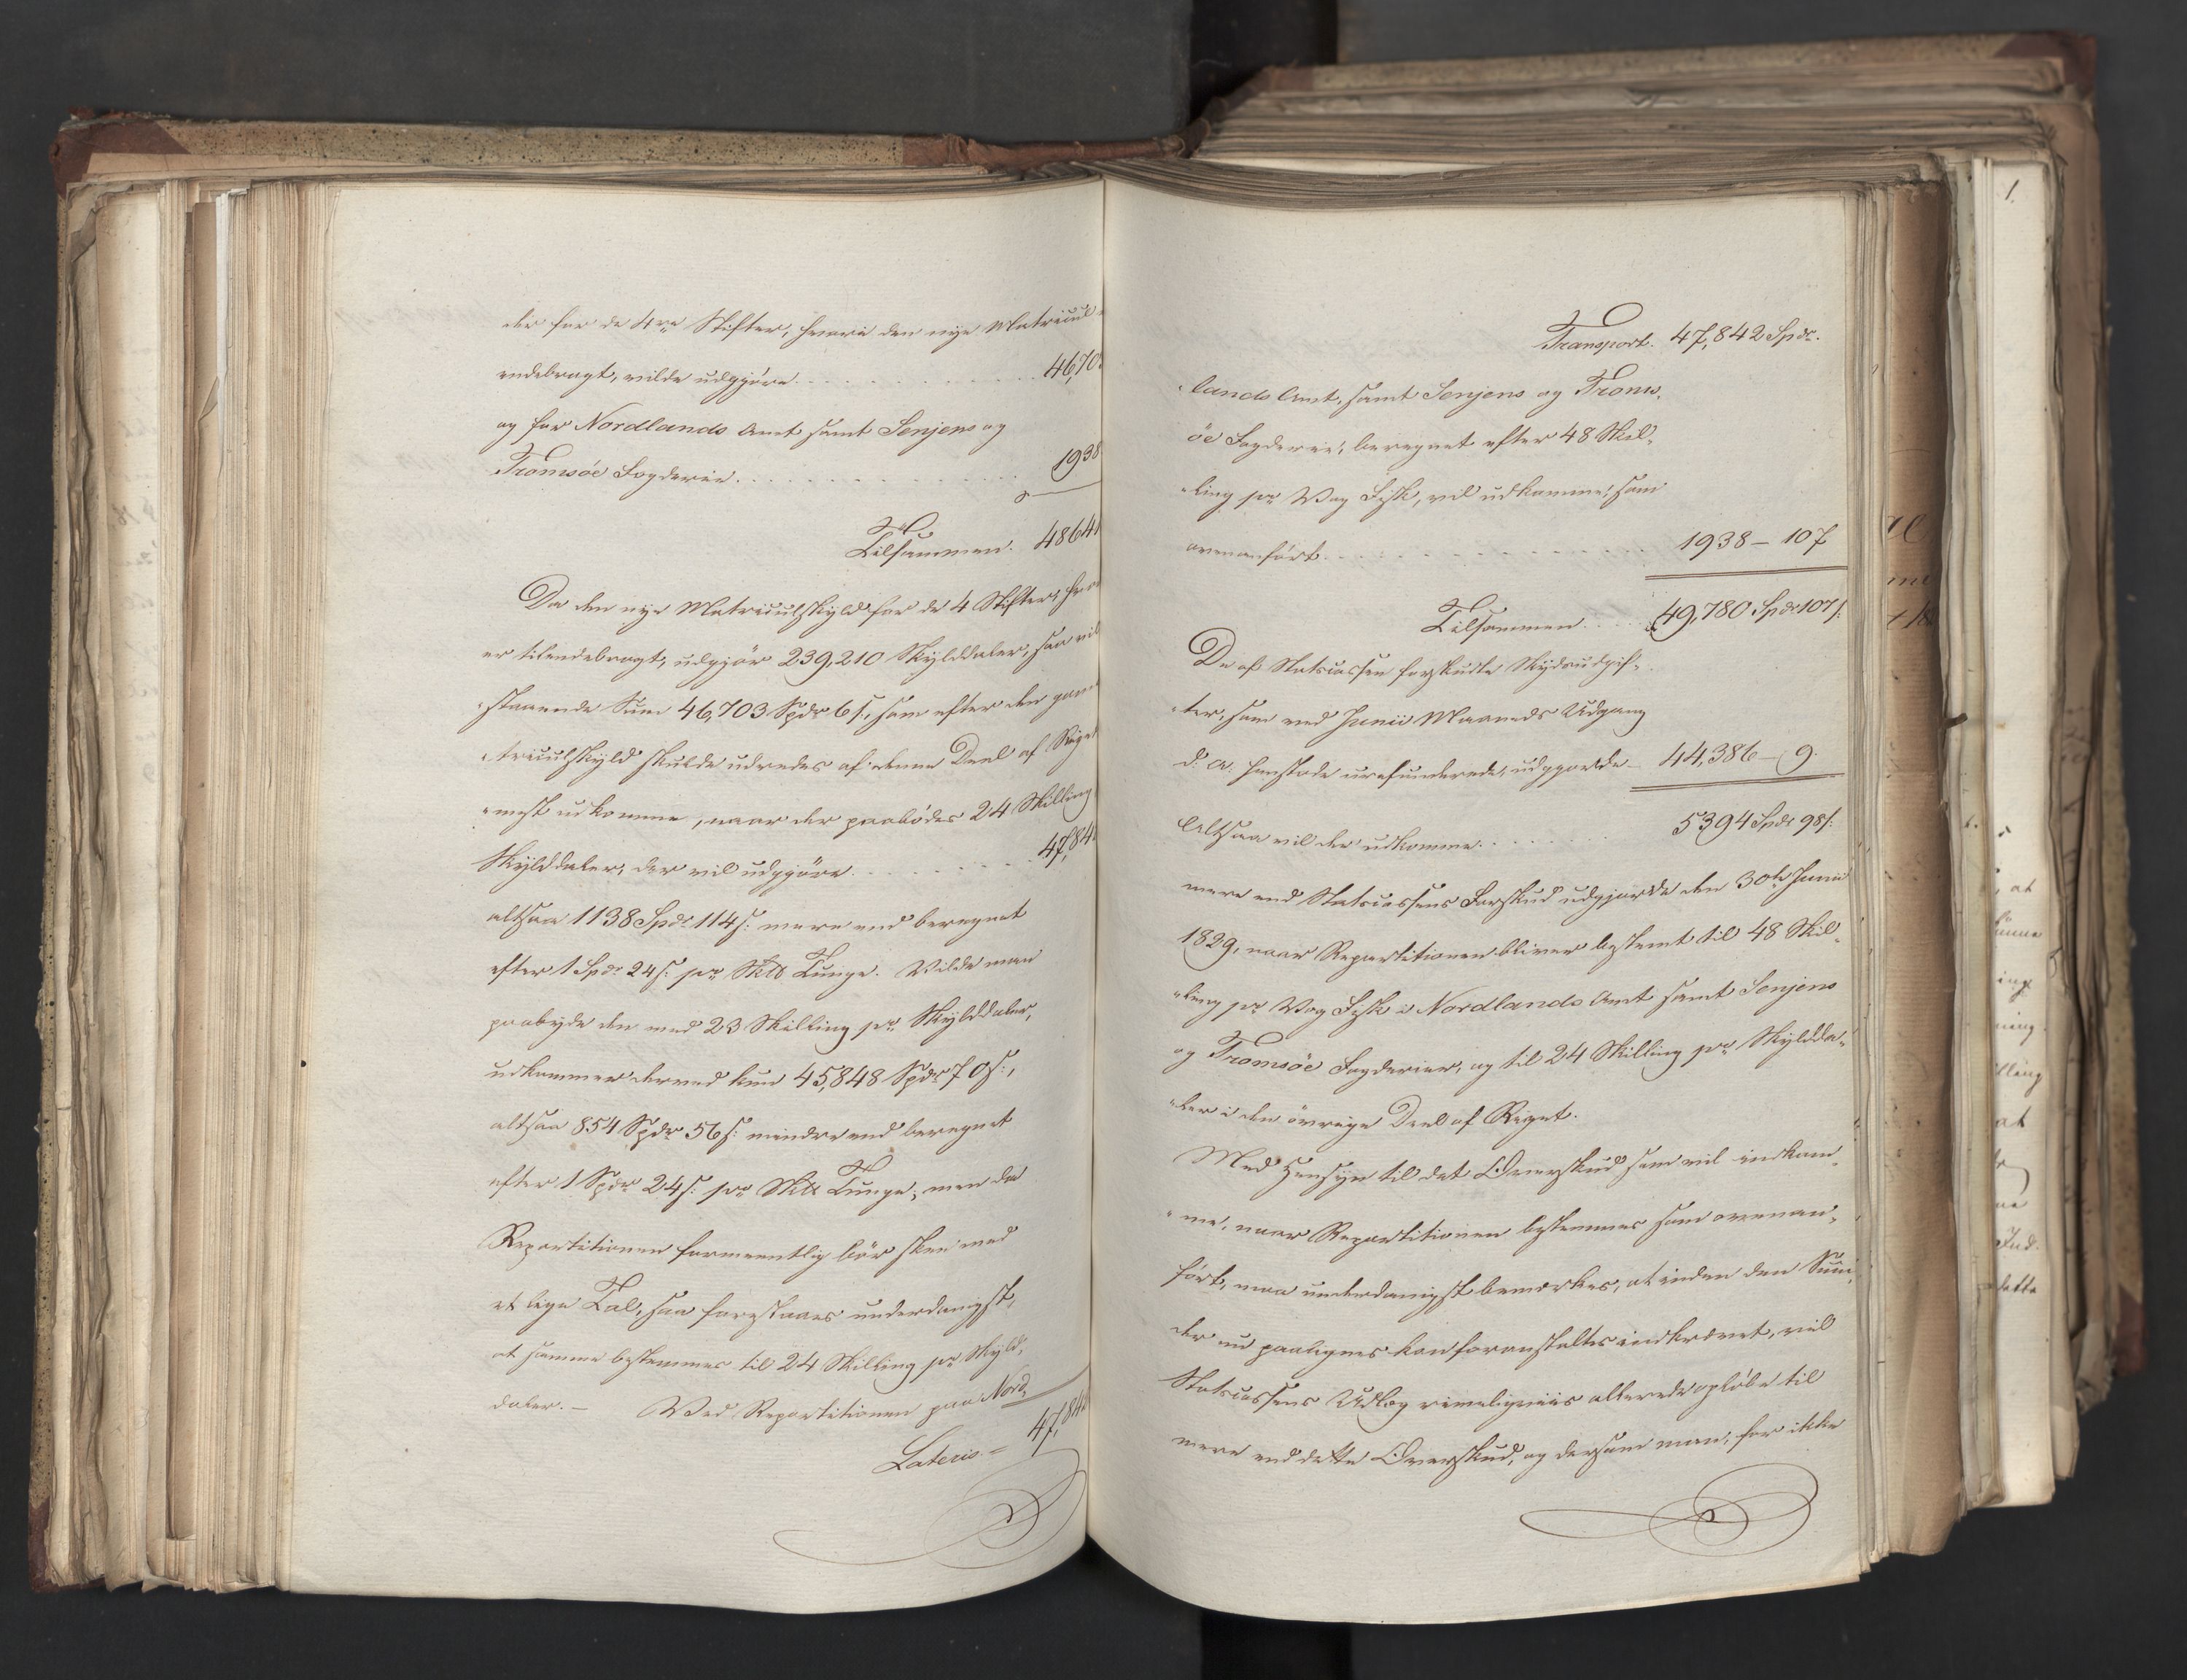 der for de 4re Stifter, hvori den nye Matricul
endebragt, vilde udgjøre . . . . . . . . . . 46,70
og for Nordlands Amt samt Senjens og
Tromsöe Fogderie . . . . . . . . . . 1938
Tilsammen. 48641
Da den nye Matriculskyld for de 4 Stifter, hvor
er tilendebragt, udgjør 239,210 Skylddaler, saa vil
staaende Sum 46,703 Spdr 6 s., som efter den gam
triculskyld skulde udredes af denne Deel af Riget
nest udkomme, naar der paabödes 24 Skilling
Skylddaler, der vil udgjöre . . . . . . . . 47,84
altsaa 1138 Spdr 114 s: mere end beregnet
efter 1 Spdr 24 s: pr Skld Tunge. Vilde man
paabyde den med 23 Skilling pr Skylddaler,
udkommer derved kun 45,848 Spdr 70 s:,
altsaa 854 Spdr 56 s: mindre end beregnet
efter 1 Spdr 24 s: pr Skld Tunge; men da
Repartitionen formeentlig bör skee med
et lige Tal, saa foreslaaes underdanigst,
at samme bestemmes til 24 Skilling pr Skyld,
daler. – Ved Repartitionen paa Nord,
Lateris = 47,84
Transport. 47,842 Spdr.
lands Amt, samt Senjens og Troms,
öe Fogderie, beregnet efter 48 Skil,
ling pr Vog Fisk, vil udkomme, som
ovenanført . . . . . . . . . . 1938 – 107
Tilsammen . . . . 49,780 Spdr 107 s:
De af Statscassen forskudte Skydsudgif,
ter, som ved Junii Maaneds Udgang
d: A: henstode urefunderede, udgjorde – 44,386 – 9.
Altsaa vil der udkomme . . . . . . . 5394 Spdr 98 s:
mere end Statscassens Forskud udgjorde den 30te Junii
1829, naar Repartitionen bliver bestemt til 48 Skil,
ling pr Vog Fisk i Nordlands Amt samt Senjens
og Tromsöe Fogderier, og til 24 Skilling pr Skyldda,
ler i den övrige Deel af Riget.
Med Hensyn til det Overskud som vil indkom,
me, naar Repartitionen bestemmes som ovenan,
fört, maa underdanigst bemærkes, at inden den Sum,
der nu paalignes kan foranstaltes indkrævet, vil
Statscassens Udlæg rimeligviis allerede oplöbe til
mere end dette Overskud, og dersom man, for ikke
1.